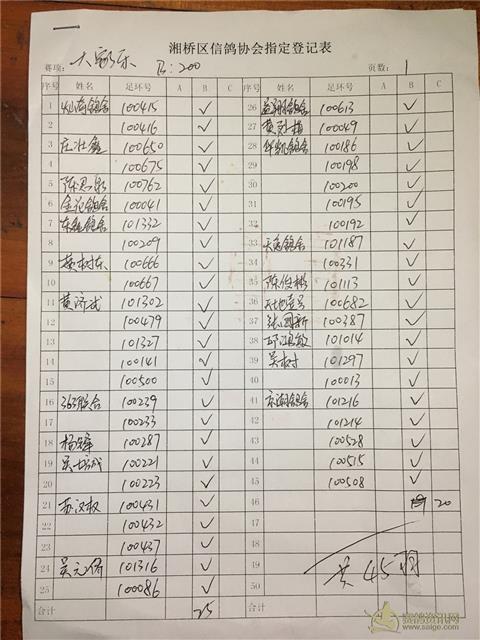 湘桥区信鸽协会指定登记表
赛项: 大家乐 B:200 页数: 1
序号 姓名 足环号 A B C 序号 姓名 足环号 A B C
1 灿南鸽舍 100415 ✓ 26 益翔鸽舍 100613 ✓
2 100416 ✓ 27 100049 ✓
3 庄壮鑫 100650 ✓ 28 华凯鸽舍 100186 ✓
4 100675 ✓ 29 100198 ✓
5 陈思彬 100762 ✓ 30 100200 ✓
6 金花鸽舍 100041 ✓ 31 100195 ✓
7 东鑫鸽舍 101332 ✓ 32 100192 ✓
8 100209 ✓ 33 鸽舍 101187 ✓
9 黄树东 100666 ✓ 34 100331 ✓
10 100667 ✓ 35 陈俊彬 101113 ✓
11 黄济武 101302 ✓ 36 天地壹号 100682 ✓
12 100479 ✓ 37 张国新 100387 ✓
13 101327 ✓ 38 邱鸿敏 101014 ✓
14 100141 ✓ 39 吴树 101297 ✓
15 100500 ✓ 40 100013 ✓
16 363鸽舍 100239 ✓ 41 京潮鸽舍 101216 ✓
17 100233 ✓ 42 101214 ✓
18 杨 100287 ✓ 43 100528 ✓
19 吴 100221 ✓ 44 100515 ✓
20 100223 ✓ 45 100508 ✓
21 苏汉权 100431 ✓ 46 20
22 100432 ✓ 47
23 100437 ✓ 48
24 吴元僖 101316 ✓ 49 共45羽
25 100086 ✓ 50
合计 25 合计
赛鸽资讯网
www.saige.com